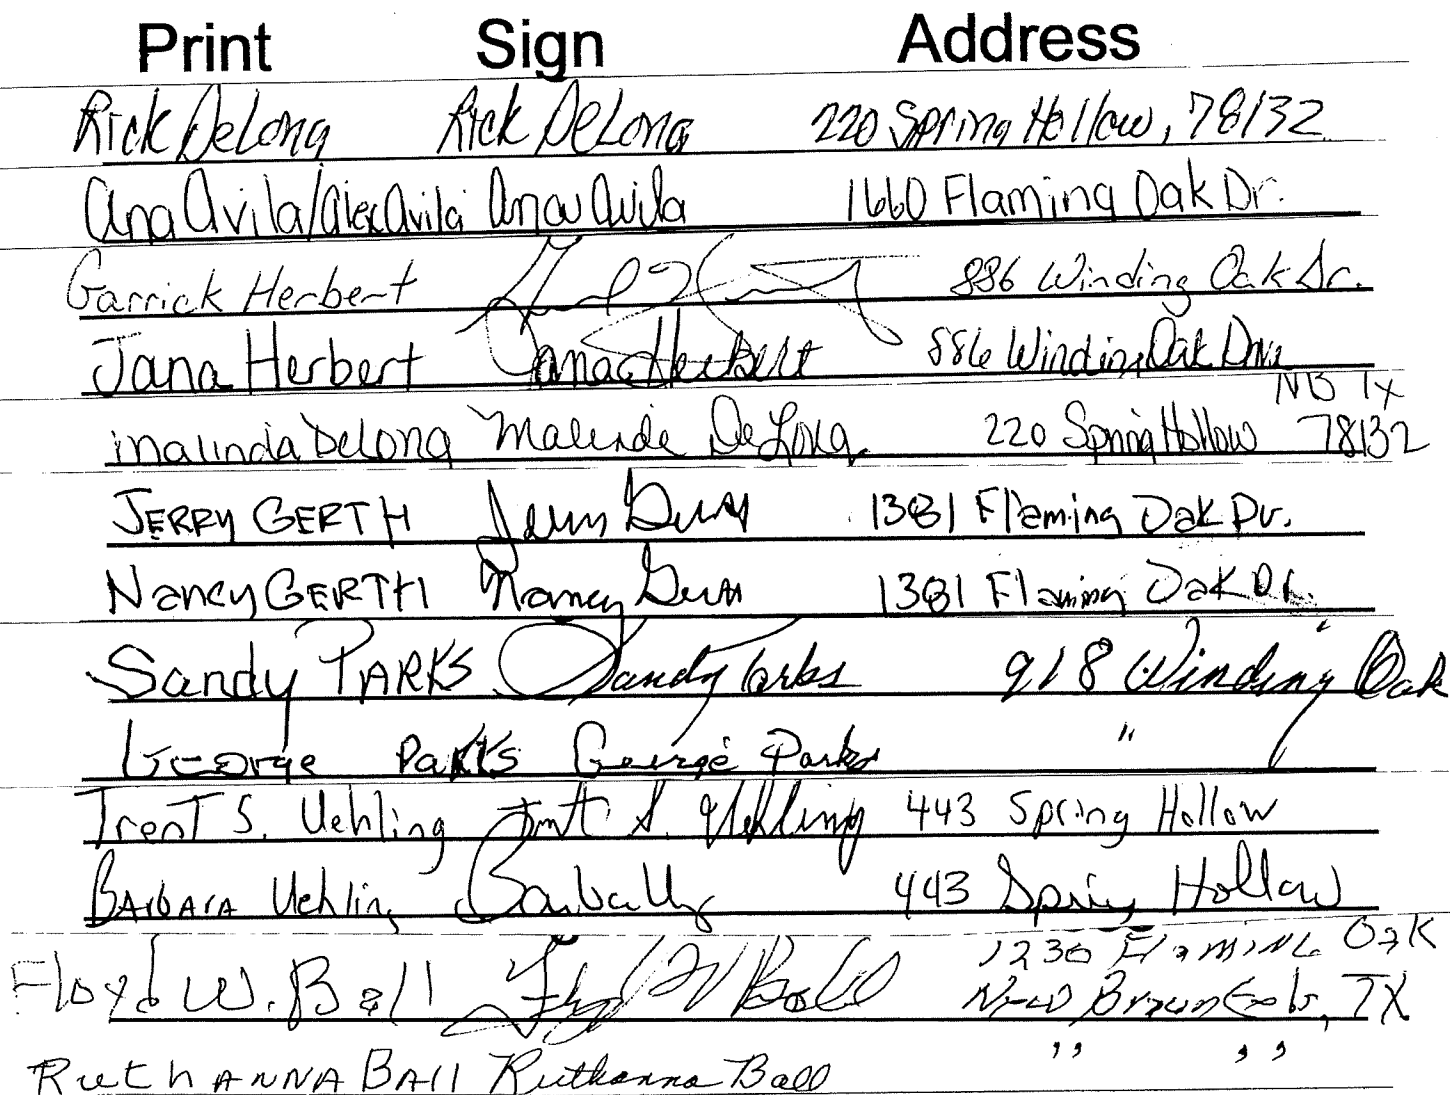 Print Sign Address
Rick DeLong Rick DeLong 220 Spring Hollow, 78132
Ana Avila/Alex Avila Ana Avila 1660 Flaming Oak Dr.
Garrick Herbert 886 Winding Oak Dr.
Jana Herbert Jana Herbert 886 Winding Oak Drive
NB Tx
malinda DeLong Malinda DeLong 220 Spring Hollow 78132
JERRY GERTH Jerry Gerth 1381 Flaming Oak Dr.
Nancy GERTH Nancy Gerth 1381 Flaming Oak Dr.
Sandy PARKS Sandy Parks 918 Winding Oak
George Parks George Parks "
Trent S. Uehling Trent S. Uehling 443 Spring Hollow
BARBARA Uehling 443 Spring Hollow
1230 Flaming Oak
Floyd W. Ball Floyd W Ball New Braunfels, TX
RuthANNA BAll Ruthanna Ball " "